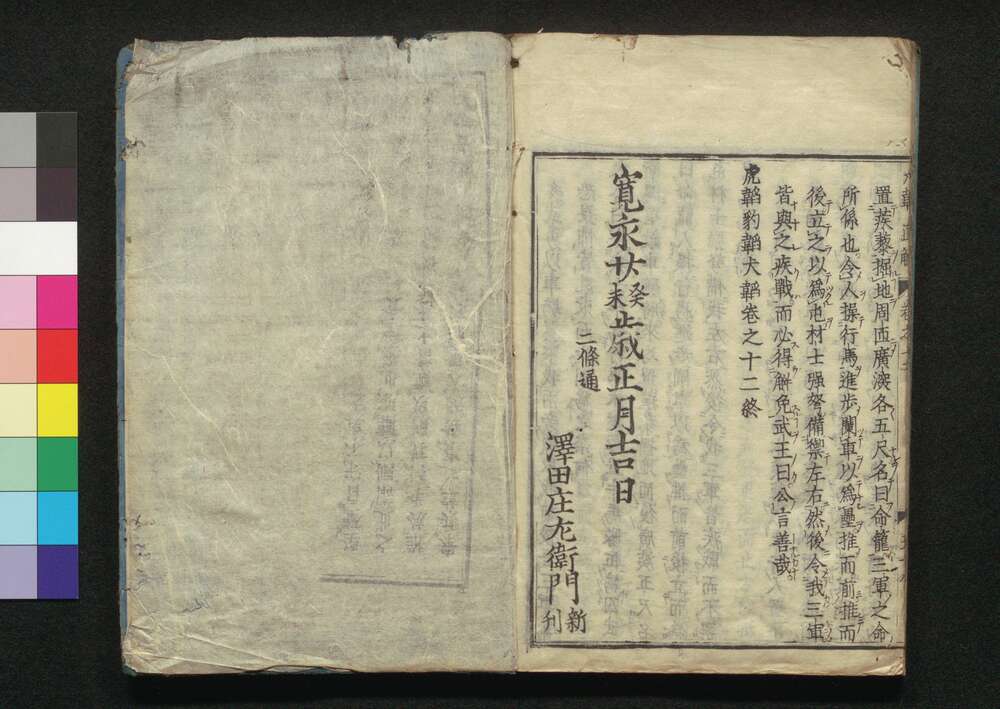 置蒺藜掘地周匝廣深各五尺名曰命籠三軍之命
所係也令人操行馬進步闌車以爲壘推而前推而
後立之以爲屯材士强弩備禦左右然後令我三軍
皆與之疾戰而必得解免武王曰公言善哉
虎韜豹韜犬韜卷之十二終
寛永廿癸未歳正月吉日
二條通
澤田庄左衛門新刊